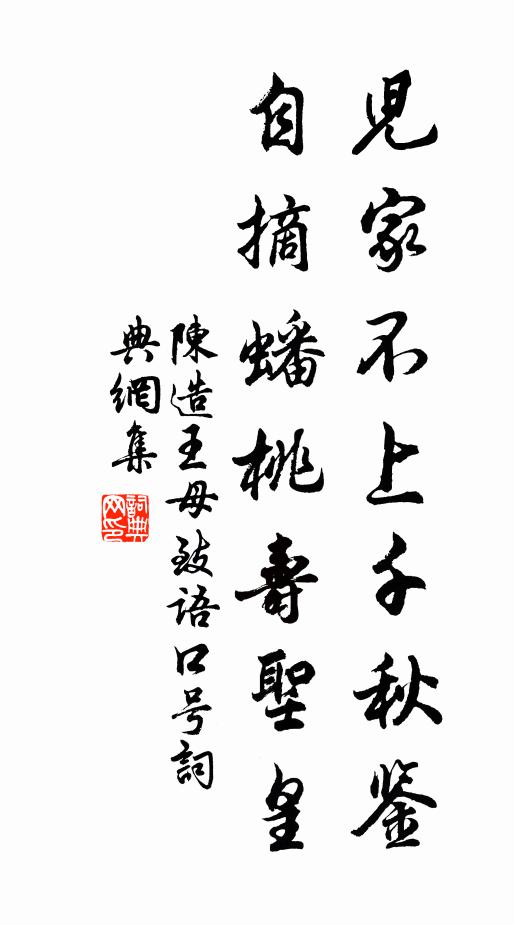 児家不上千秋鉴
自摘蟠桃壽聖皇
陳造王母致语口号詞
典網集
詞典网印